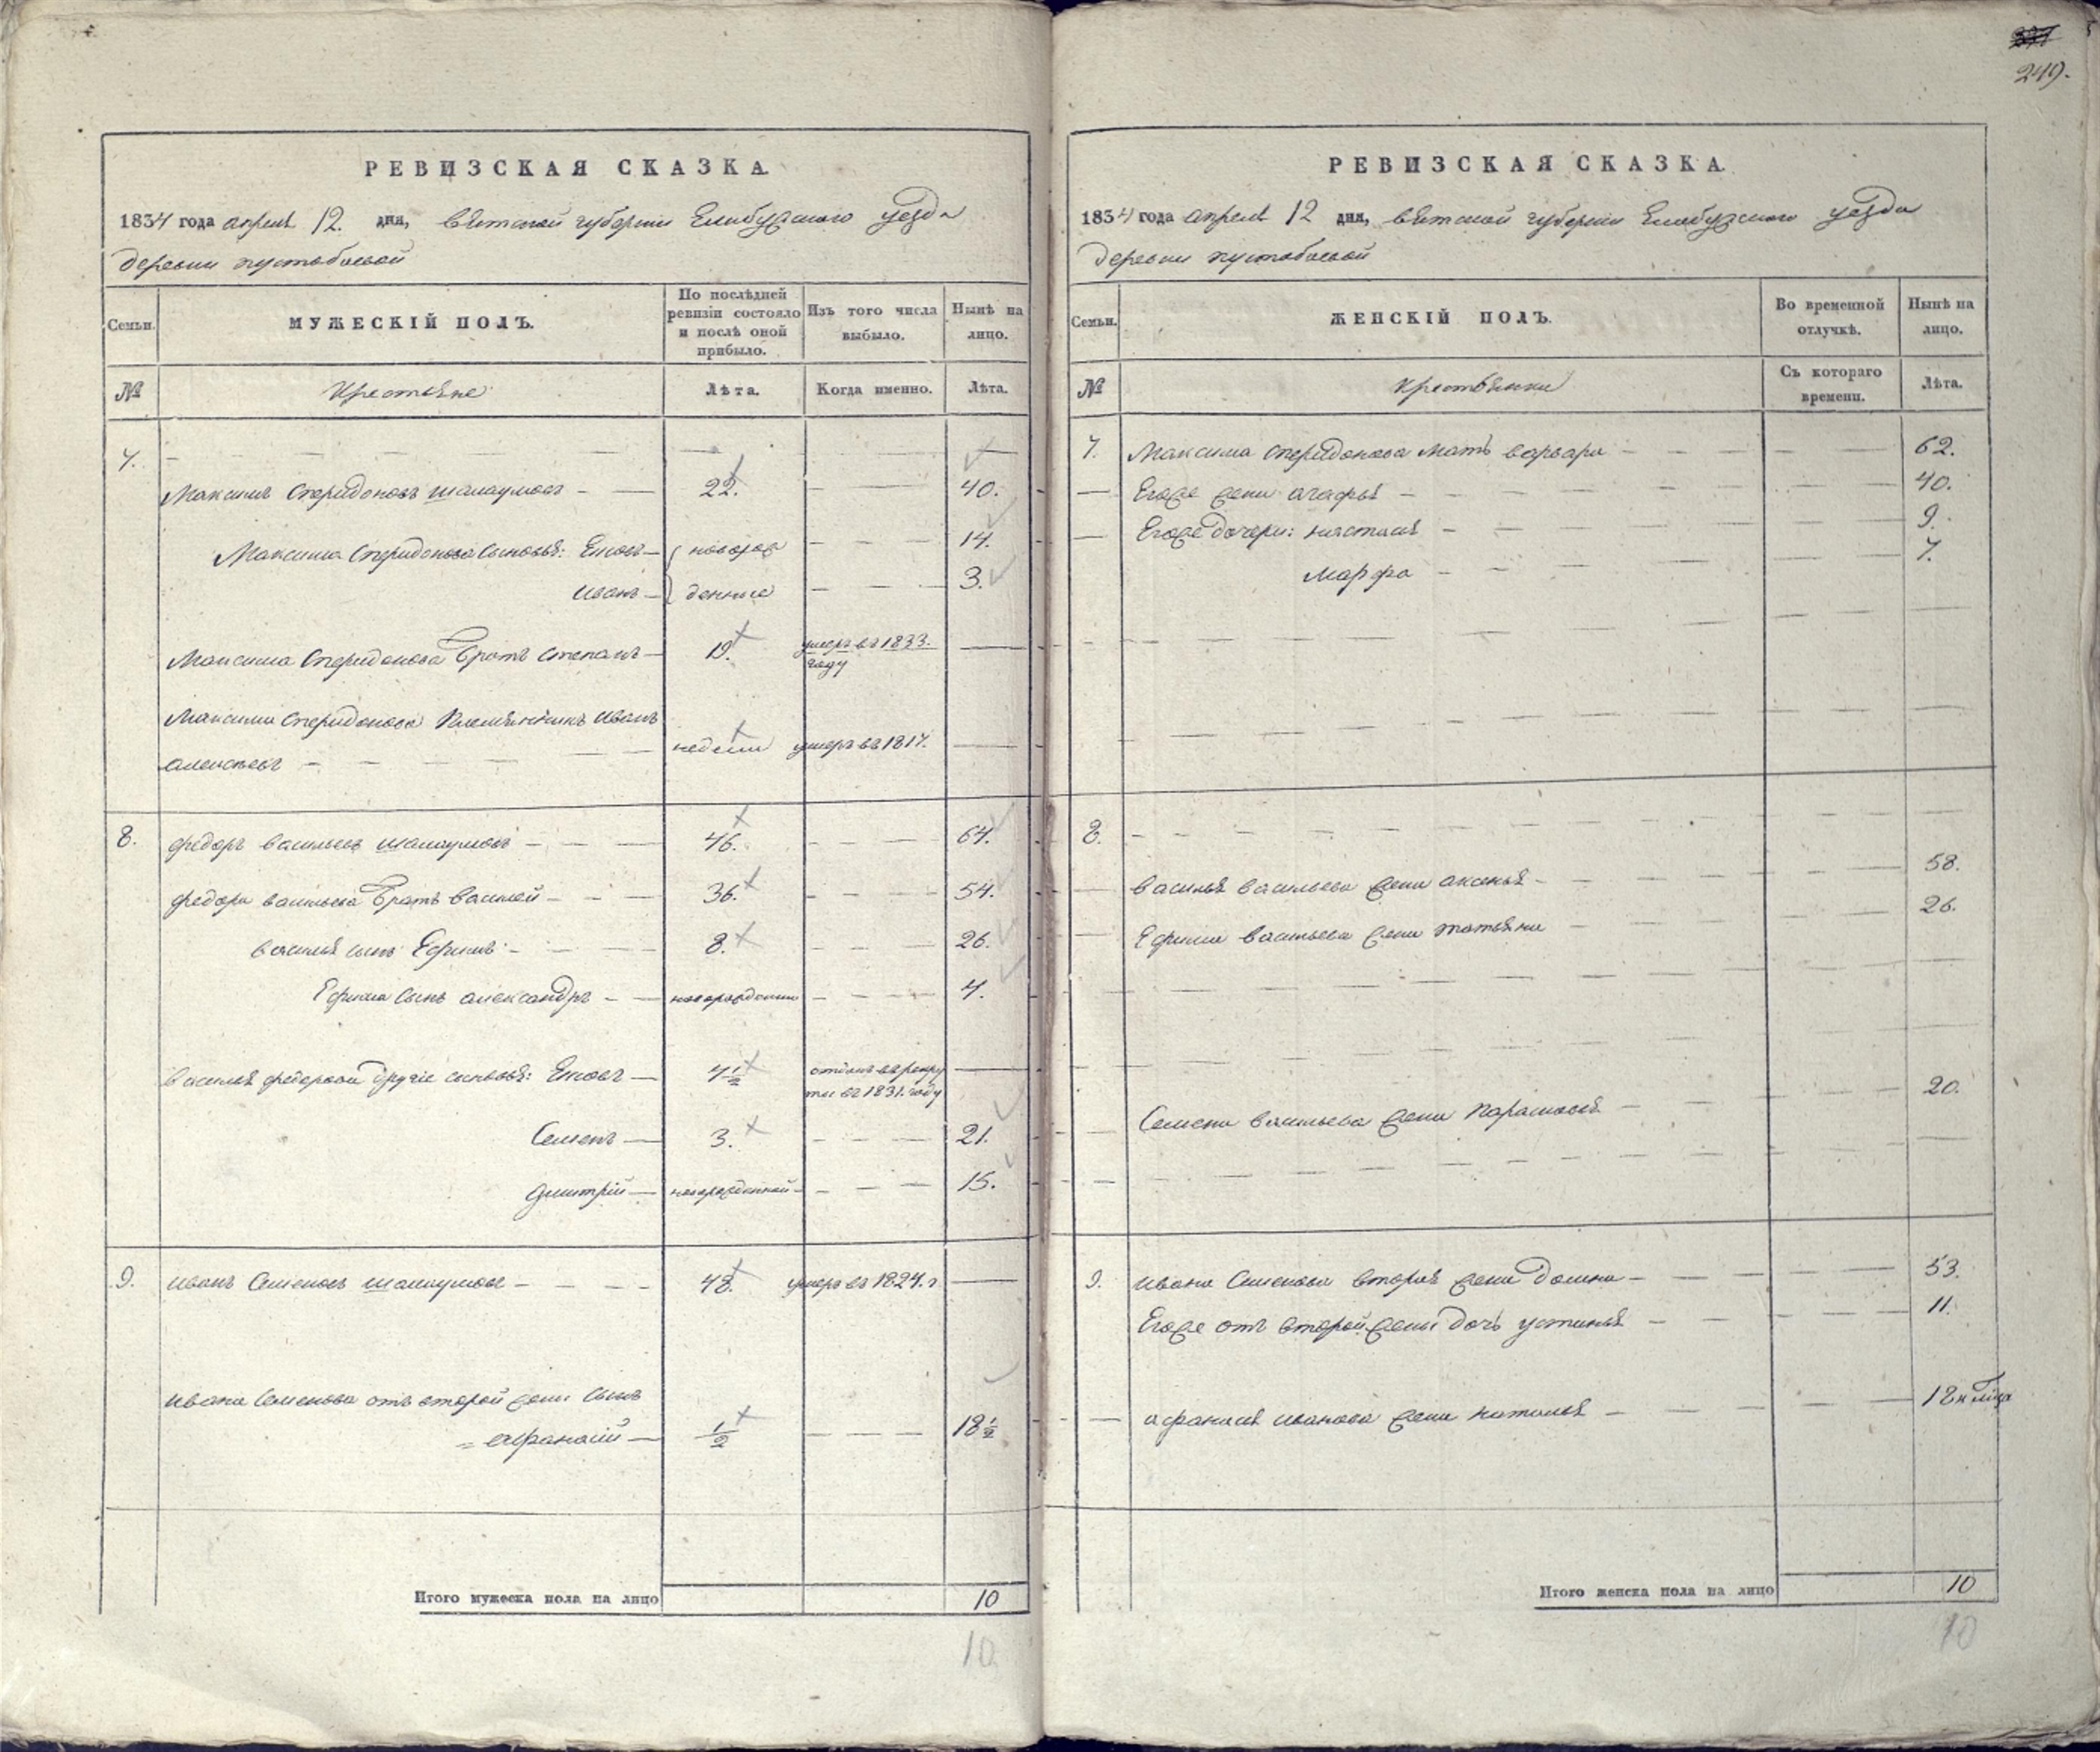 249.
РЕВИЗСКАЯ СКАЗКА.
1834 года апреля 12. дня, вятской губернии Елабужского уезда
деревни пустобаевой
Семьи.
МУЖЕСКІЙ ПОЛЪ.
По послѣдней ревизіи состояло и послѣ оной прибыло.
Изъ того числа выбыло.
Нынѣ на лицо.
№
Крестьяне
Лѣта.
Когда именно.
Лѣта.
7.
Максимъ Спиридоновъ 22. 40.
Максима Спиридонова сыновья: Ековъ новорож 14.
Иванъ денные 3.
Максима Спиридонова братъ степанъ 19. умеръ въ 1833. году
Максима Спиридонова племянникъ иванъ
алексѣевъ недели умеръ въ 1817.
8. федоръ васильевъ 46. 64.
федора васильева братъ василей 36. 54.
василья сынъ Ефимъ 8. 26.
Ефима сынъ александръ новорожденный 4.
василья другіе сыновья: Ековъ 4 1/2 отданъ въ рекру
ты въ 1831. году
Семенъ 3. 21.
дмитрій новорожденной 15.
9. иванъ Семеновъ 48. умеръ въ 1824. г
ивана Семенова отъ второй жены сынъ
афанасій 1/2 18 1/2
Итого мужеска пола на лицо 10
10
РЕВИЗСКАЯ СКАЗКА.
1834 года апреля 12 дня, вятской губернии Елабужского уезда
деревни пустобаевой
Семьи.
ЖЕНСКІЙ ПОЛЪ.
Во временной отлучкѣ.
Нынѣ на лицо.
№
крестьянки
Съ котораго времени.
Лѣта.
7. Максима спиридонова мать варвара 62.
Егоже жена агафья 40.
Егоже дочери: настасья 9.
марфа 7.
8.
василья васильева жена аксенья 58.
Ефима васильева жена татьяна 26.
Семена васильева жена парасковья 20.
9. ивана Семенова вторая жена домна 53.
Егоже отъ второй жены дочь устинья 11.
афанасья иванова жена наталья 18
Итого женска пола на лицо 10
10